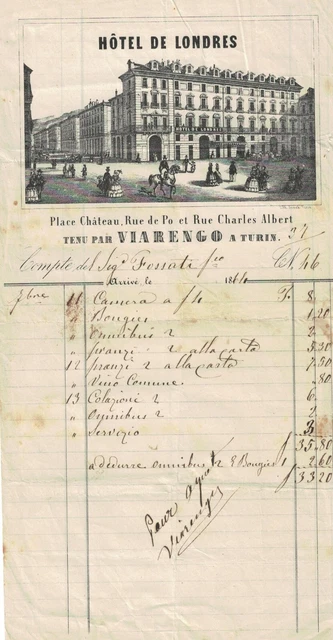 HÔTEL DE LONDRES
HÔTEL DE LONDRES
Place Château, Rue de Po et Rue Charles Albert
TENU PAR VIARENGO A TURIN. 27
Compte del Sigr Fossati C.N. 46
Arrivé le 1864
7bre 11 Camera a f 4 8
" Bougies 1.20
" Omnibus 2 2
" pranzi 2 alla carta 5.30
12 pranzi 2 alla carta 7.50
" Vino Comune. .80
13 Colazioni 2 6
" Omnibus 2 2
" Servizio 3
f 35.80
a dedurre omnibus 2 E Bougies 1 2.60
f 33.20
Pour Aquit
Viarengo